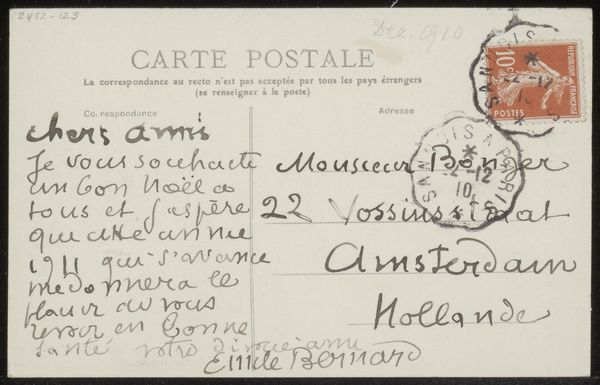 2452-123
Dec. 1910
CARTE POSTALE
La correspondance au recto n'est pas acceptée par tous les pays étrangers
(se renseigner à la poste)
Correspondance
Adresse
chers amis
Je vous souhaite
un bon Noël a
tous et j'espère
que cette année
1911 qui s'avance
me donnera le
plaisir de vous
revoir en bonne
santé votre ami
Emile Bernard
Monsieur Bonger
22 Vossiusstraat
Amsterdam
Hollande
REPUBLIQUE FRANÇAISE
10c
POSTES
SANNOIS A PARIS
2-12
10